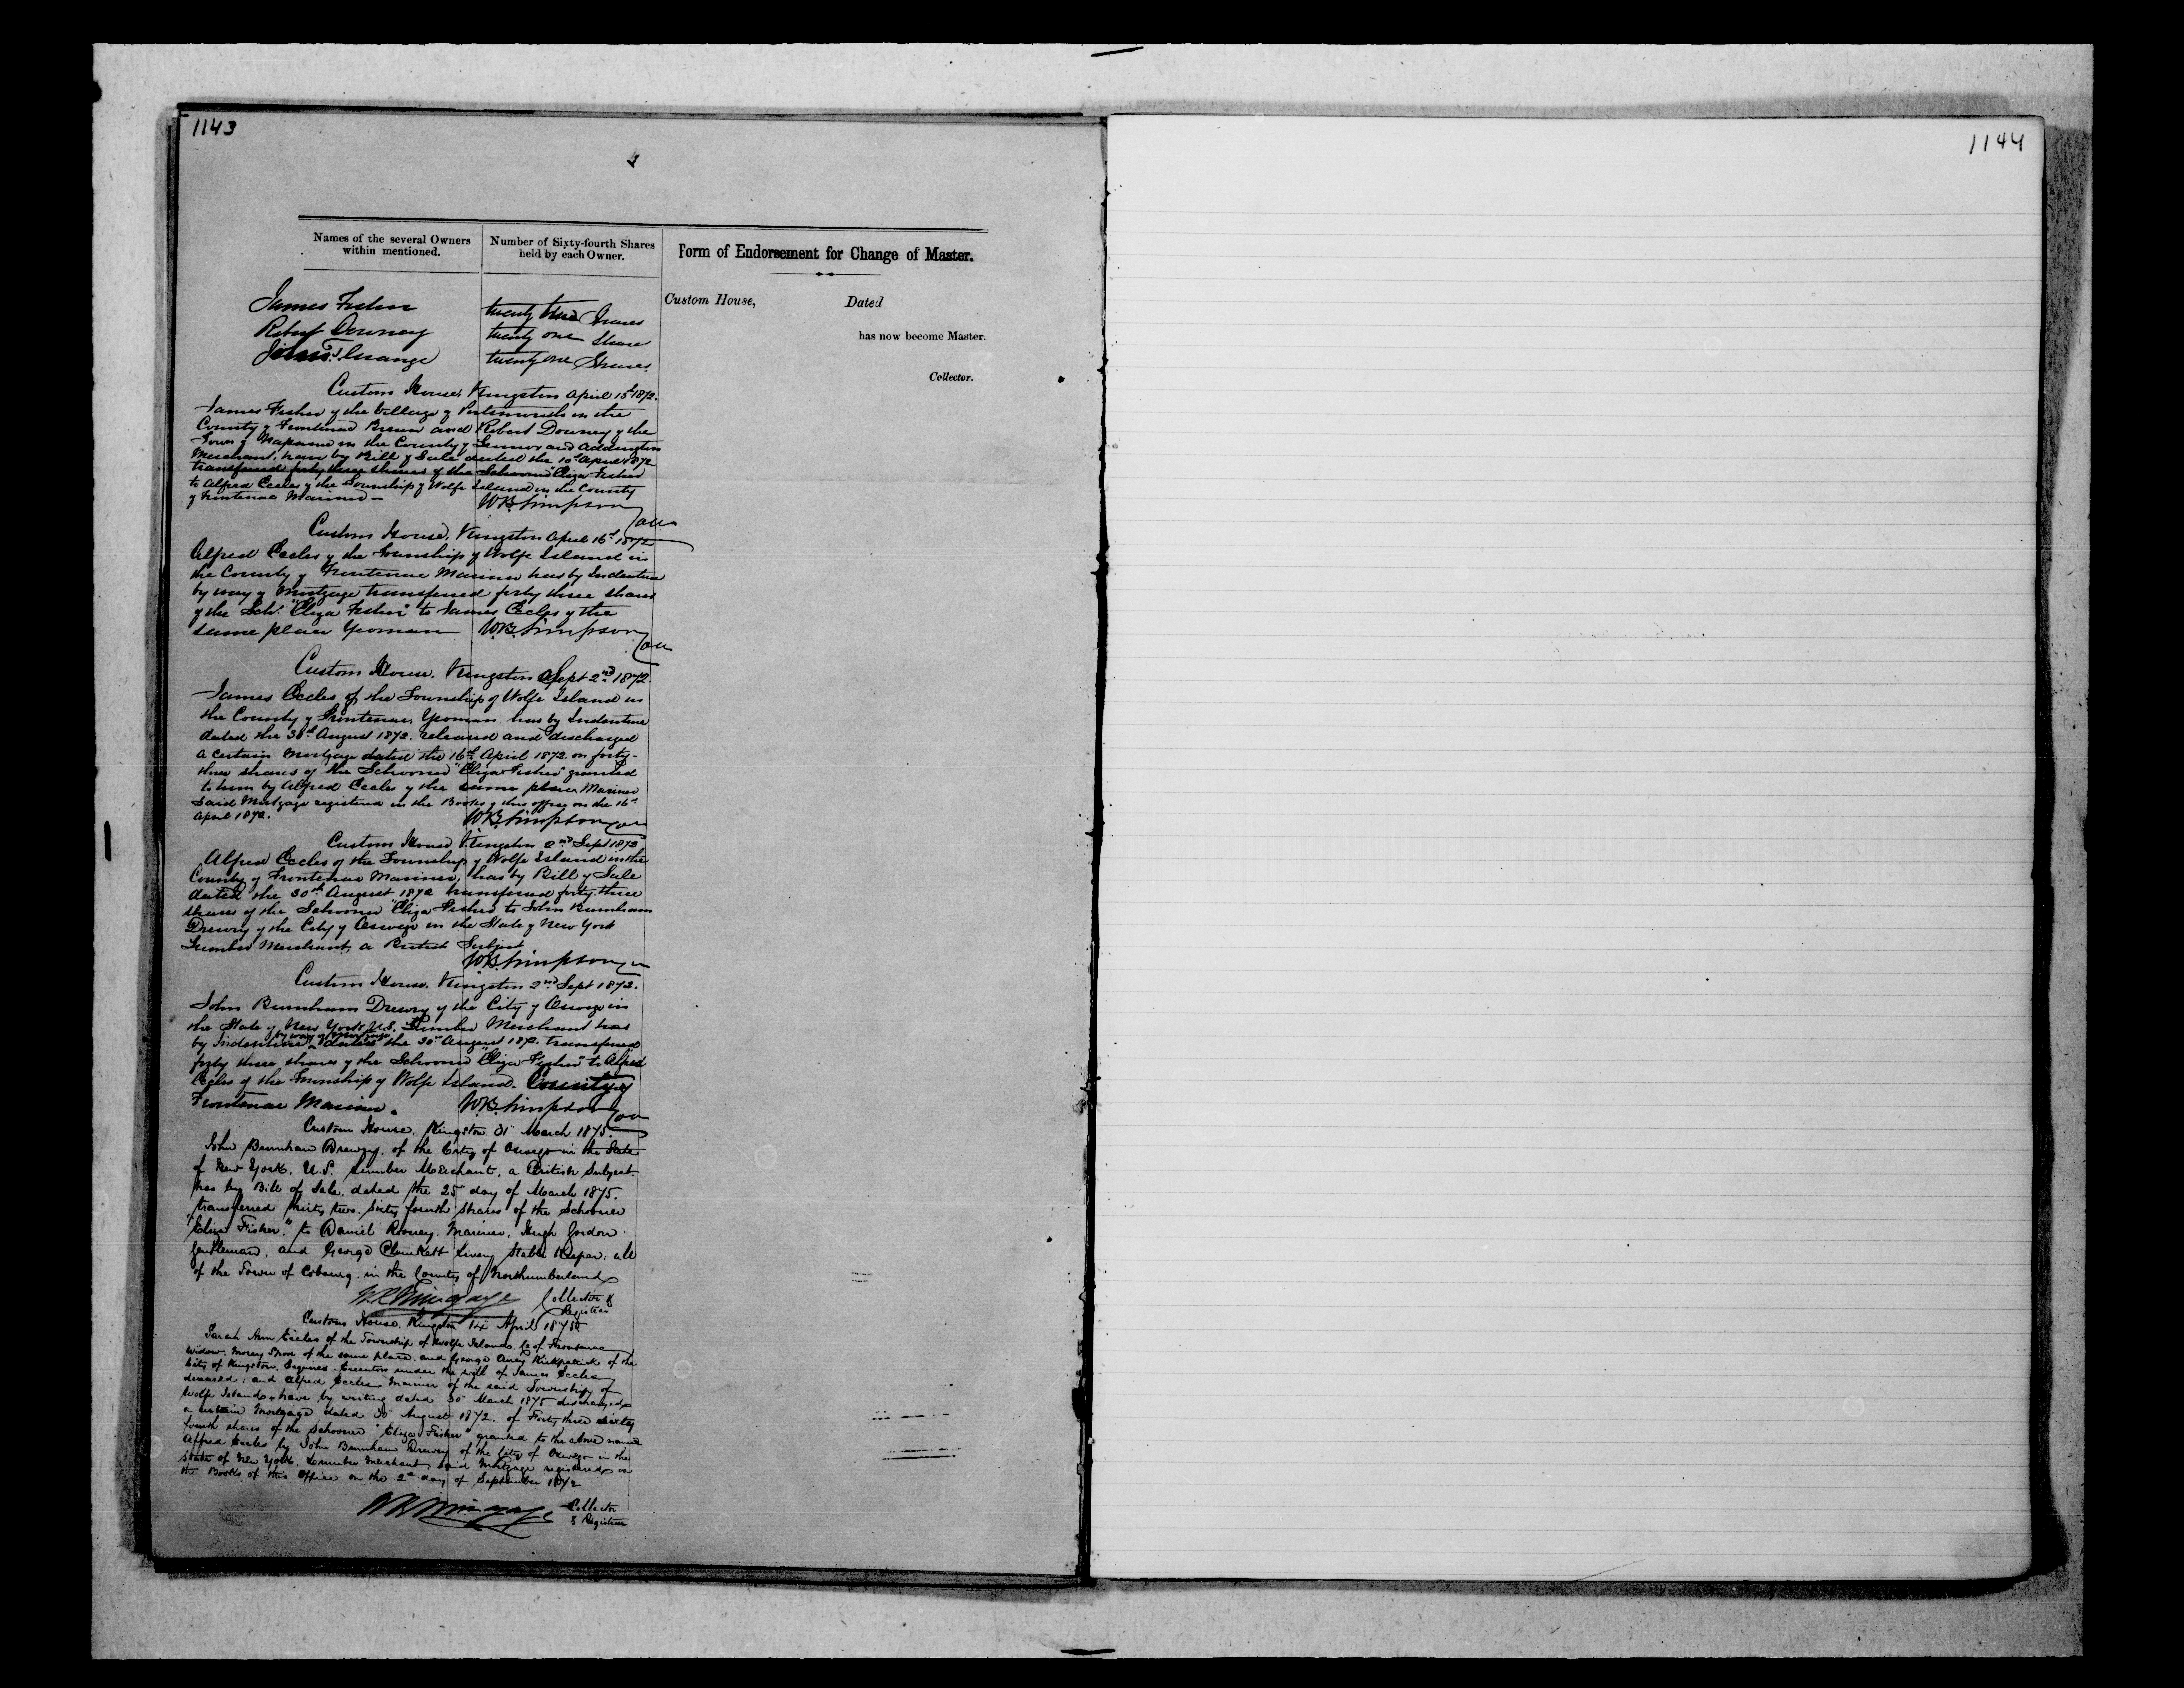 1143
1144
Names of the several Owners within mentioned.
Number of Sixty-fourth Shares held by each Owner.
Form of Endorsement for Change of Master.
Custom House,
Dated
has now become Master.
Collector.
James Fisher twenty two Shares
Robert Downey twenty one Share
twenty one Shares.
Custom House, Kingston April 15th 1872.
James Fisher of the Village of Portsmouth in the
County of Frontenac Brewer and Robert Downey of the
Town of Napanee in the County of Lennox and Addington
Merchant, have by Bill of Sale dated the 10th April 1872
transferred forty three shares of the Schooner "Eliza Fisher
to Alfred Eccles of the Township of Wolfe Island in the County
of Frontenac Mariner —
W.B. Simpson
Custom House, Kingston April 16th 1872
Alfred Eccles of the Township of Wolfe Island in
the County of Frontenac Mariner has by Indenture
by way of Mortgage transferred forty three shares
of the Schr. "Eliza Fisher" to James Eccles of the
same place Yeoman W.B. Simpson
Custom House, Kingston Sept 2nd 1872
James Eccles of the Township of Wolfe Island in
the County of Frontenac, Yeoman has by Indenture
dated the 30th August 1872. released and discharged
a certain Mortgage dated the 16th April 1872 on forty-
three shares of the Schooner "Eliza Fisher" granted
to him by Alfred Eccles of the same place Mariner
Said Mortgage registered in the Books of this office on the 16th
April 1872. W.B. Simpson
Custom House Kingston 2nd Sept 1872
Alfred Eccles of the Township of Wolfe Island in the
County of Frontenac Mariner, has by Bill of Sale
dated the 30th August 1872 transferred forty three
shares of the Schooner "Eliza Fisher to John Burnham
Drewry of the City of Oswego in the State of New York
Lumber Merchant, a British Subject
W.B. Simpson
Custom House. Kingston 2nd Sept 1872.
John Burnham Drewry of the City of Oswego in
the State of New York U.S. Lumber Merchant has
by Indenture by way of Mortgage dated the 30th August 1872. transferred
forty three shares of the Schooner "Eliza Fisher" to Alfred
Eccles of the Township of Wolfe Island. County of
Frontenac Mariner. W.B. Simpson
Custom House. Kingston. 31 March 1875.
John Burnham Drewry. of the City of Oswego in the State
of New York. U.S. Lumber Merchant, a British Subject.
has by Bill of Sale. dated the 25 day of March 1875.
transferred thirty two. sixty fourth shares of the Schooner
"Eliza Fisher." to Daniel Rooney. Mariner, Hugh Gordon
Gentleman, and George Plunkett Livery Stable Keeper: all
of the Town of Cobourg. in the County of Northumberland
W.R. Mingaye Collector & Registrar
Custom House. Kingston 14 April 1875.
Sarah Ann Eccles of the Township of Wolfe Island. Co of Frontenac
Widow. of the same place. and George Kirkpatrick of the
City of Kingston. Esquires. Executors under the will of James Eccles
deceased; and Alfred Eccles Mariner of the said Township of
Wolfe Island. have by writing dated 30 March 1875 discharged
a certain Mortgage dated 30 August 1872. of Forty three sixty
fourth shares of the Schooner "Eliza Fisher" granted to the above named
Alfred Eccles by John Burnham Drewry of the City of Oswego in the
State of New York. Lumber Merchant, said Mortgage registered in
the Books of this Office on the 2nd day of September 1872
W.R. Mingaye Collector
& Registrar